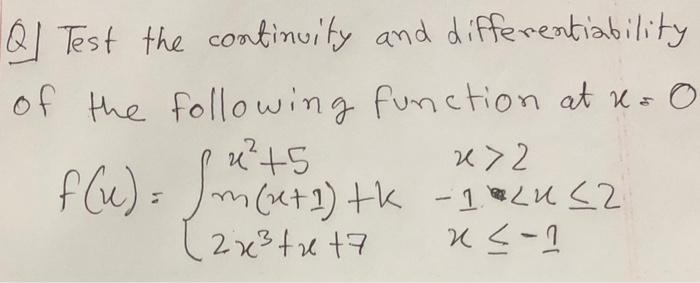 Q] Test the continuity and differentiability
of the following function at x = 0
x²+5 x>2
f(x) = { m(x+1)+k -1 <x ≤2
2x³+x+7 x ≤ -1